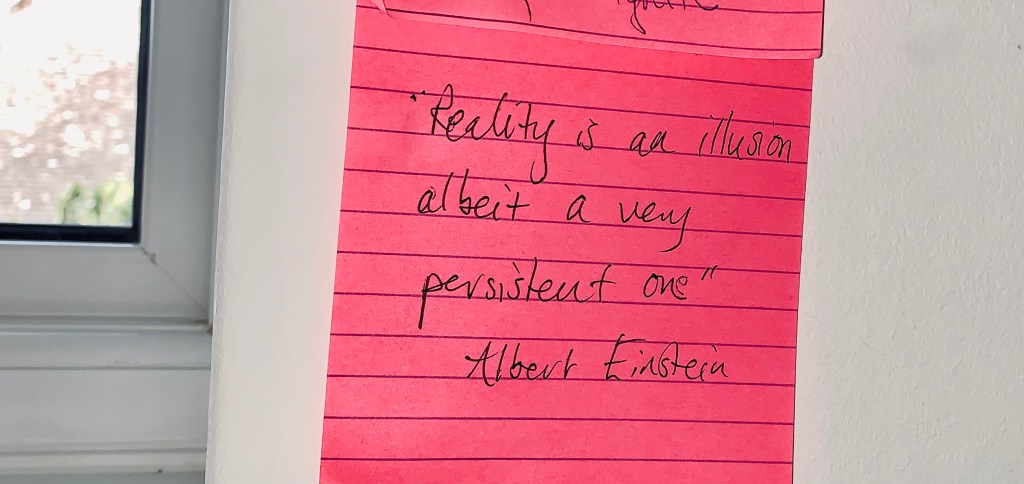 "Reality is an illusion
albeit a very
persistent one"
Albert Einstein